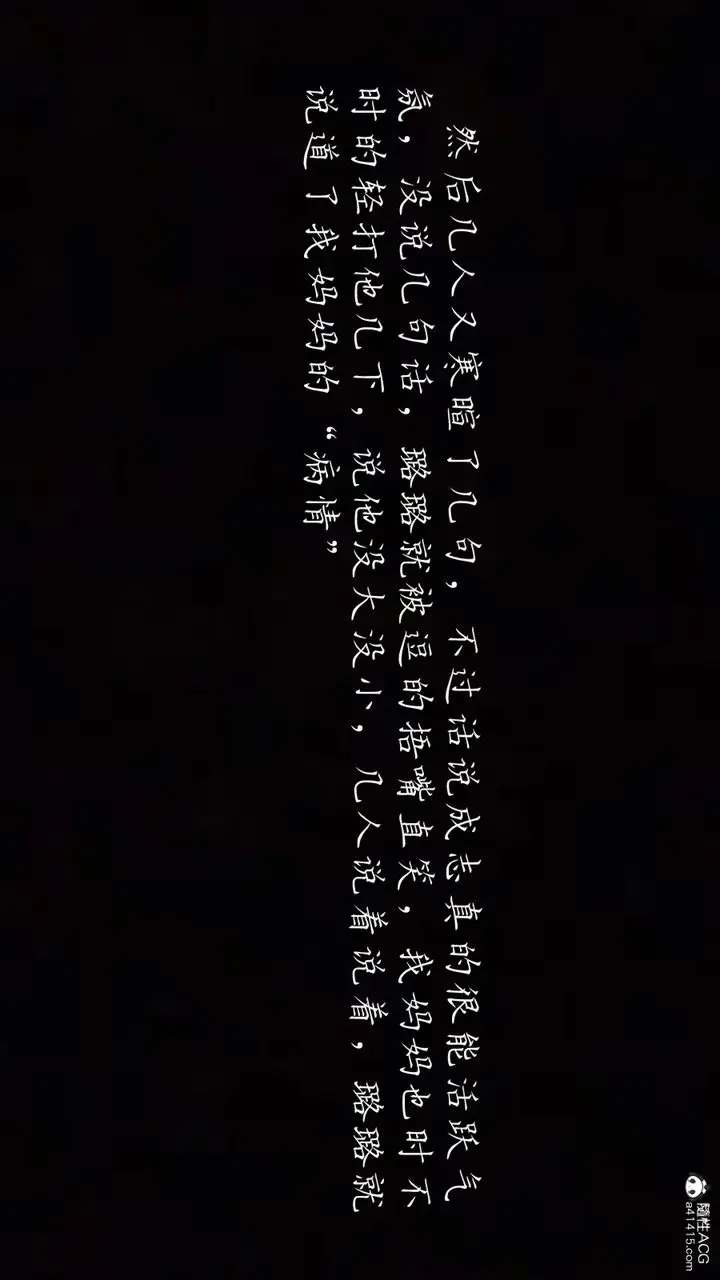 然后几人又寒暄了几句，不过话说成志真的很能活跃气
氛，没说几句话，璐璐就被逗的捂嘴直笑，我妈妈也时不
时的轻打他几下，说他没大没小，几人说着说着，璐璐就
说道了我妈妈的“病情”
隨性ACG
a41415.com